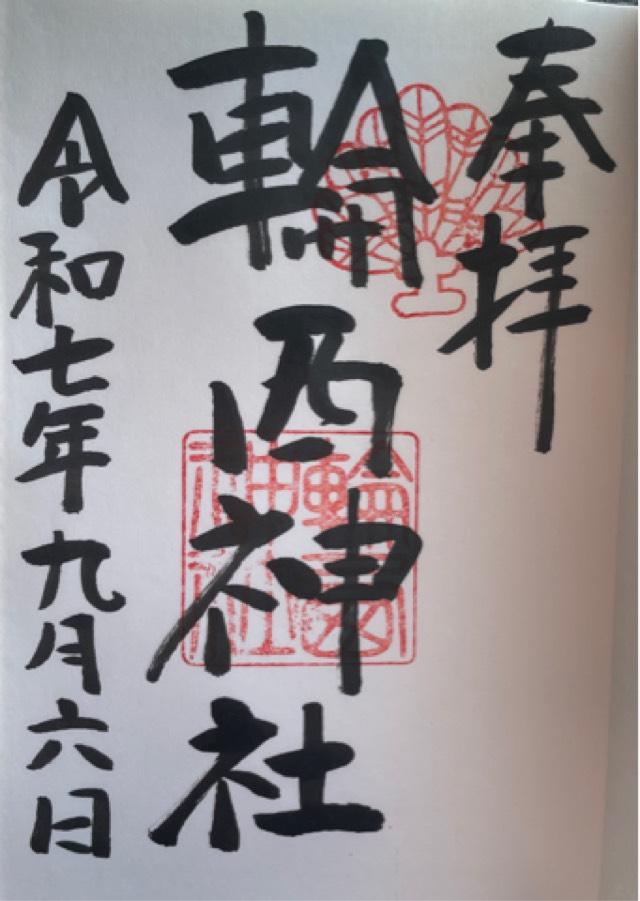 奉拝
輪西神社
輪西神社
令和七年九月六日